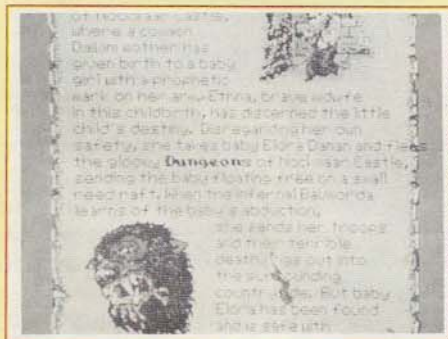 of Nockmaar Castle,
where a common
Daikini mother has
given birth to a baby
girl with a prophetic
mark on her arm. Ethna, brave midwife
in this childbirth, has discerned the little
child's destiny. Disregarding her own
safety, she takes baby Elora Danan and flees
the gloomy Dungeons of Nockmaar Castle,
sending the baby floating free on a small
reed raft. When the infernal Bavmorda
learns of the baby's abduction,
she sends her troops
and their terrible
death dogs out into
the surrounding
countryside. But baby
Elora has been found
and is safe with